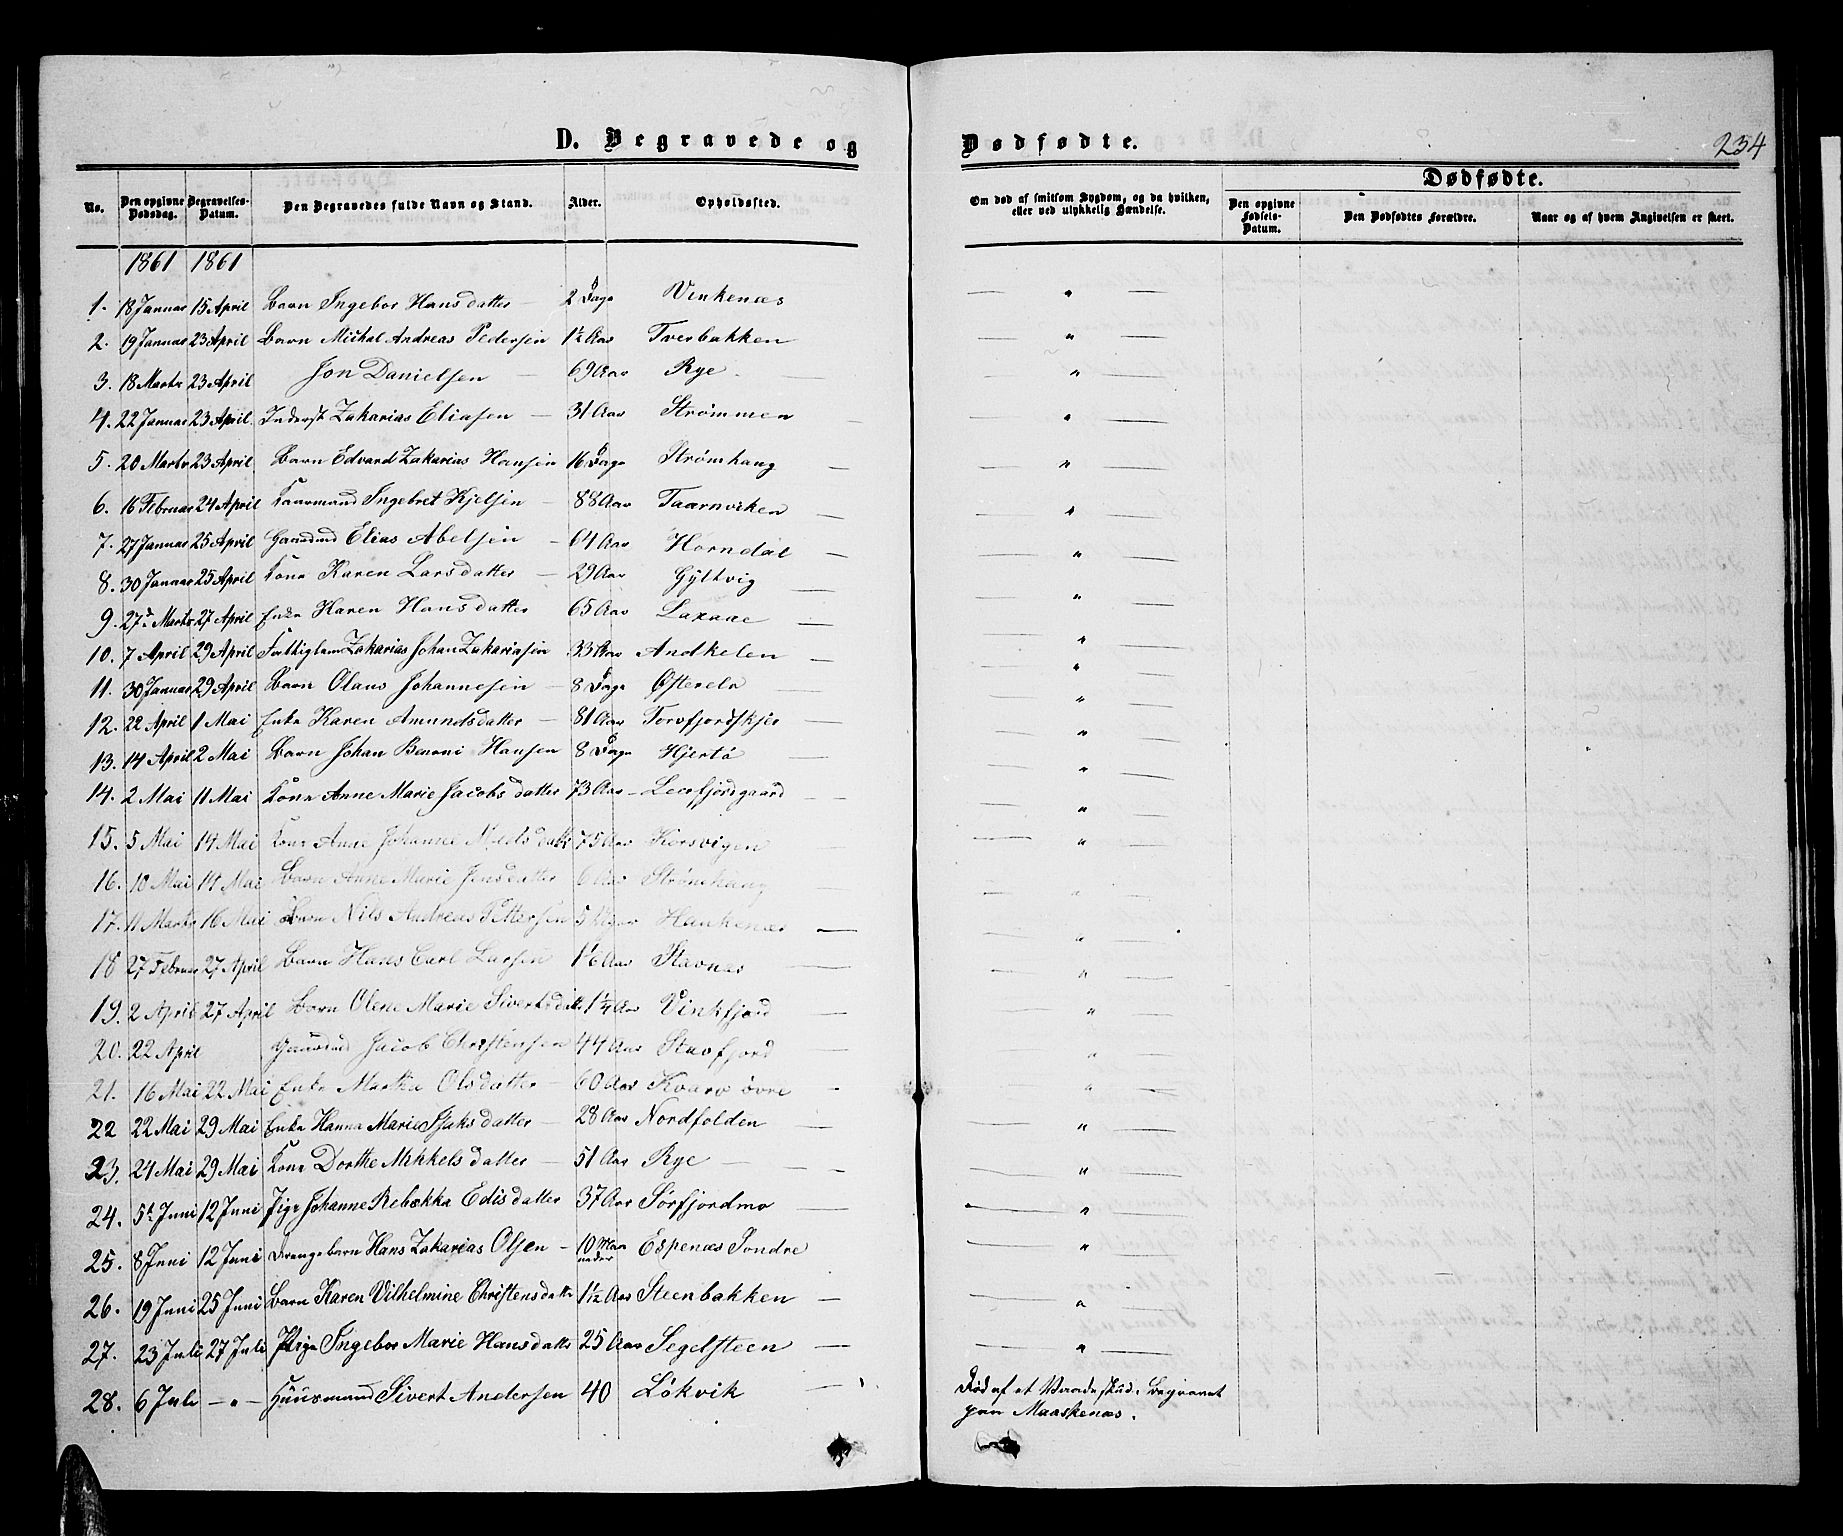 D. Begravede og Dødfødte.
234
No.
Den opgivne Dødsdag.
Begravelses-Datum.
Den Begravedes fulde Navn og Stand.
Alder.
Opholdssted.
Om død af smitsom Sygdom, og da hvilken, eller ved ulykkelig Hændelse.
Dødfødte.
Den opgivne Fødsels-Datum.
Den Dødfødtes Forældre.
Naar og af hvem Angivelsen er skeet.
1861 1861
1. 18 Januar 15 April Barn Ingebor Hansdatter — 2 Dage Vinkenæs — " —
2. 19 Januar 23 April Barn Michal Andreas Pedersen 1½ Aar Tverbakken — " —
3. 18 Marts 23 April Jon Danielsen — 69 Aar Rye — " —
4. 22 Januar 23 April Inderst Zakarias Eliasen — 31 Aar Strømmen — " —
5. 20 Marts 23 April Barn Edvard Zakarias Hansen 16 Dage Strømhaug — " —
6. 16 Februar 24 April Kaarmand Ingebret Kjelsen — 88 Aar Taarnviken — " —
7. 27 Januar 25 April Gaardmd Elias Abelsen — 64 Aar Horndal — " —
8. 30 Januar 25 April Kone Karen Larsdatter — 29 Aar Gyltvig — " —
9. 27de Marts 27 April Enke Karen Hansdatter 65 Aar Laxaae — " —
10. 7 April 29 April Zakarias Johan Zakariasen 33 Aar Andkelen — " —
11. 30 Januar 29 April Barn Olaus Johannesen — 8 Dage — " —
12. 22 April 1 Mai Enke Karen Amundsdatter — 81 Aar Torvfjordskjer — " —
13. 14 April 2 Mai Barn Johan Benoni Hansen 8 Dage Hjertø — " —
14. 2 Mai 11 Mai Kone Anne Marie Jacobsdatter 73 Aar — Leerfjordgaard — " —
15. 5 Mai 14 Mai Kone Anne Johanne Nielsdatter 75 Aar Korsvigen — " —
16. 10 Mai 14 Mai Barn Anne Marie Jensdatter 6 Aar Strømhaug — " —
17. 11 Marts 16 Mai Barn Nils Andreas Pettersen 5 Uger Haukenæs — " —
18 27 Februar 27 April Barn Hans Carl Larsen 1 1/6 Aar Stavnæs — " —
19. 2 April 27 April Barn Olene Marie Sivertsdatter 1¼ Aar Vinkfjord — " —
20. 22 April Gaardmd Jacob Christensen 44 Aar Stavfjord — " —
21. 16 Mai 22 Mai Enke Martha Olsdatter — 60 Aar Kvarv øvre — " —
22 22 Mai 29 Mai Enke Hanna Marie Isaksdatter — 28 Aar Nordfolden — " —
23. 24 Mai 29 Mai Kone Dorthe Mikkelsdatter — 51 Aar Rye — " —
24. 5te Juni 12 Juni Pige Johanne Rebekka Edisdatter 37 Aar Sørfjordmo — " —
25. 8 Juni 12 Juni Drengebarn Hans Zakarias Olsen — 10 Maaneder Espenæs Søndre — " —
26. 19 Juni 25 Juni Barn Karen Vilhelmine Christensdatter 1 1/12 Aar Steenbakken — " —
27. 23 Juli 27 Juli Pige Ingebor Marie Hansdatter 25 Aar Segelsteen — " —
28. 6 Juli — " — Huusmand Sivert Andersen 40 Løkvik — Død af et Vaadeskud. Begravet
paa Maaskenæs.